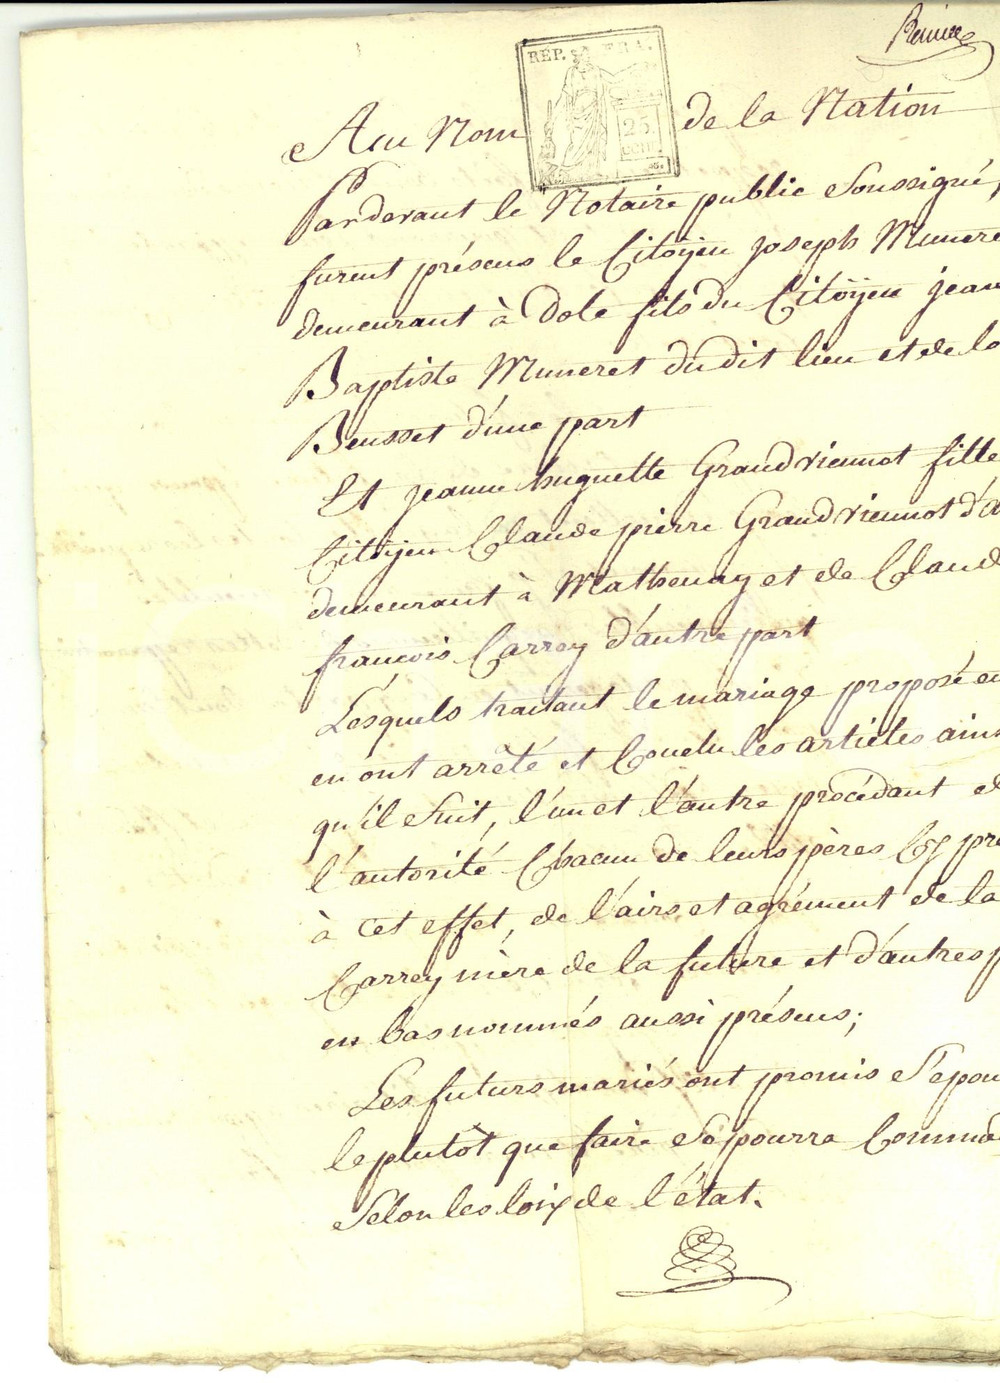 REP. FRA.
25
cent.
Au Nom de la Nation
Pardevant le Notaire public Soussigné,
furent présens le Citoyen Joseph Munere
demeurant à Dole fils du Citoÿen jean
Baptiste Muneret dudit lieu et de la
Beusset d'une part
Et jeanne huguette Grandviennot fille
Citoyen Claude pierre Grandviennot d'a
demeurant à Mathenay et de Claud
françois Carrey d'autre part
Lesquels traitant le mariage proposé en
en ont arrêté et Conclu les articles ains
qu'il Suit, l'un et l'autre procédant de
l'autorité Chacun de leurs pères Cy pré
à cet effet, de l'avis et agrément de la
Carrey mère de la future et d'autres p
en bas nommés aussi présens;
Les futurs mariés ont promis S'épou
le plutôt que faire Se pourra Comme
Selon les loix de l'état.